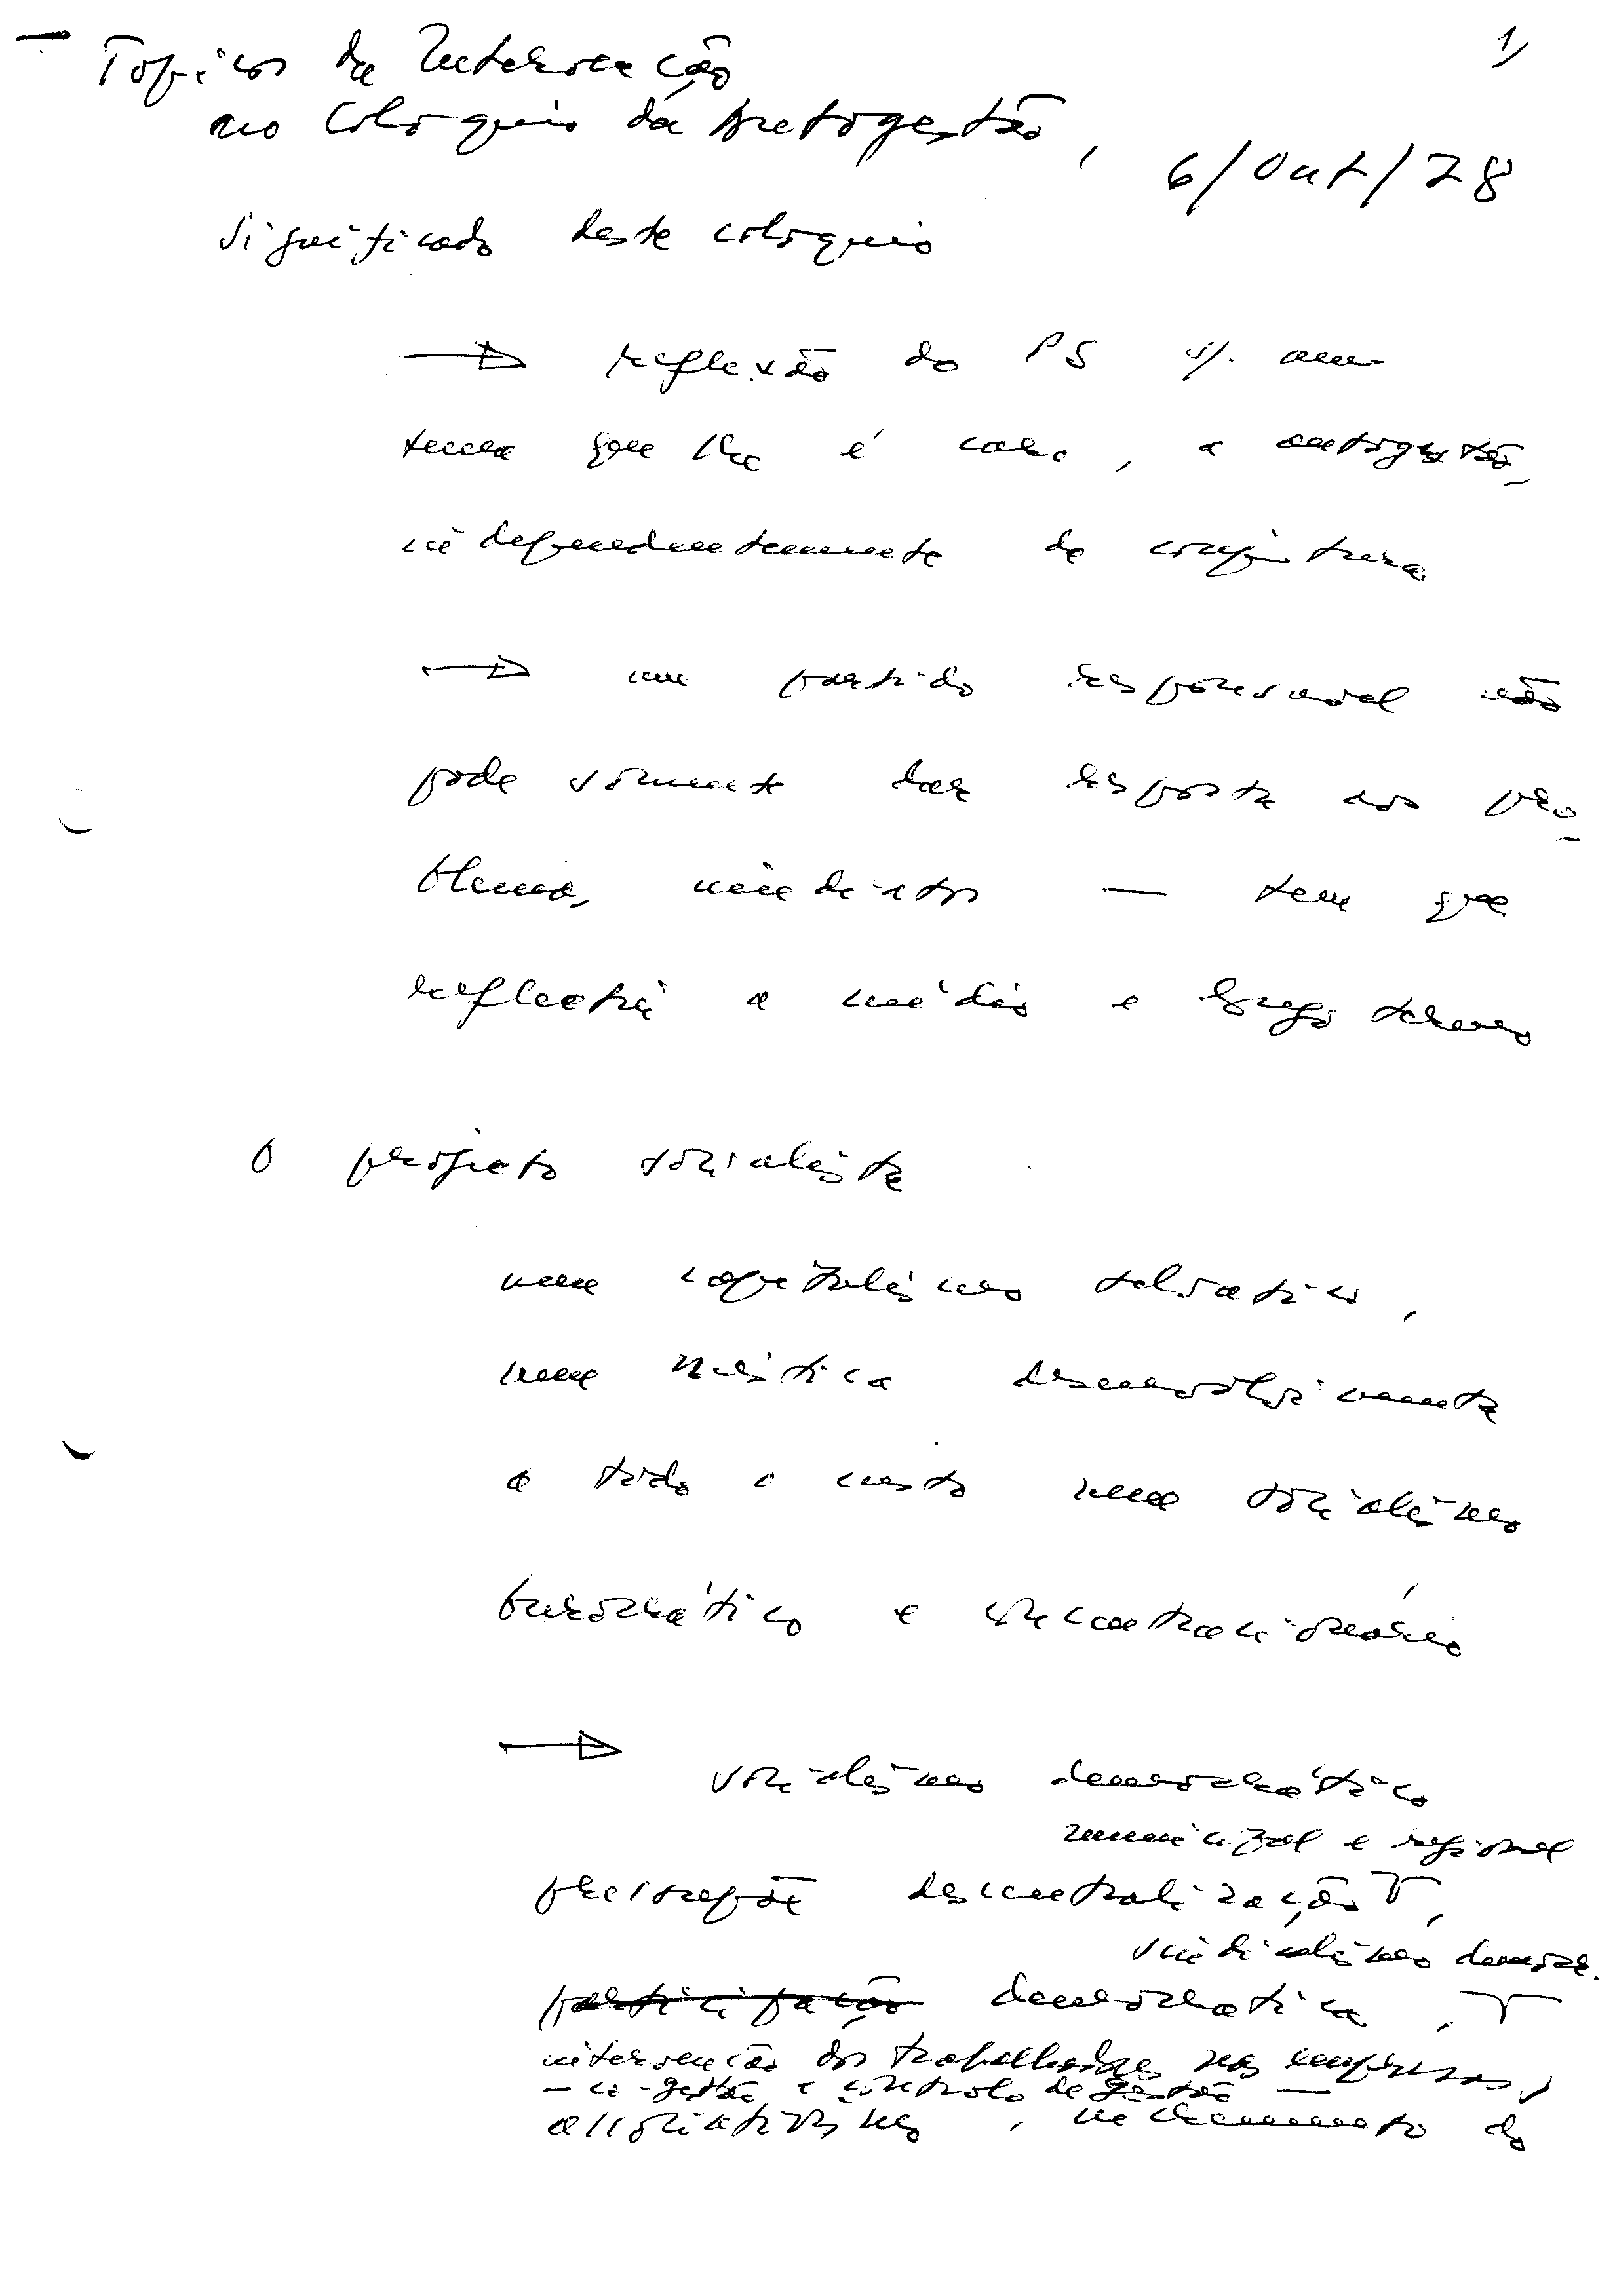 — Topicos da Intervenção
1/
no Coloquio da Autogestão,
6/Out/78
Significado deste coloquio
→ reflexão do PS s/. um
tema que lhe é caro, a autogestão,
independentemente da conjuntura
→ um partido responsavel não
pode somente dar resposta aos pro-
blemas imediatos — tem que
reflectir a médio e longo termo
O projecto socialista
nem capitalismo selvatico,
nem mistica desenvolvimento
a todo o custo nem socialismo
burocrático e concentracionário
→ socialismo democrático
municipal e regional
pressupõe descentralização,
sindicalismo democr.
participação democratica,
intervenção dos trabalhadores nas empresas,
— co-gestão e controlo de gestão —
associativismo, incremento do